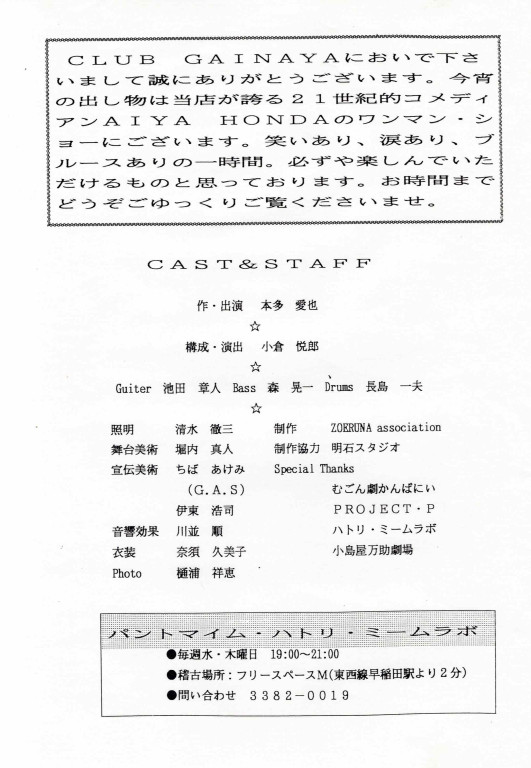 ＣＬＵＢ　ＧＡＩＮＡＹＡにおいで下さ
いまして誠にありがとうございます。今宵
の出し物は当店が誇る２１世紀的コメディ
アンＡＩＹＡ　ＨＯＮＤＡのワンマン・シ
ョーにございます。笑いあり、涙あり、ブ
ルースありの一時間。必ずや楽しんでいた
だけるものと思っております。お時間まで
どうぞごゆっくりご覧くださいませ。
ＣＡＳＴ＆ＳＴＡＦＦ
作・出演　本多　愛也
☆
構成・演出　小倉　悦郎
☆
Guiter 池田　章人 Bass 森　晃一 Drums 長島　一夫
☆
照明　清水　徹三　制作　ZOERUNA association
舞台美術　堀内　真人　制作協力　明石スタジオ
宣伝美術　ちば　あけみ　Special Thanks
(G.A.S)　むごん劇かんぱにい
伊東　浩司　ＰＲＯＪＥＣＴ・Ｐ
音響効果　川並　順　ハトリ・ミームラボ
衣装　奈須　久美子　小島屋万助劇場
Photo　樋浦　祥恵
パントマイム・ハトリ・ミームラボ
●毎週水・木曜日　19:00～21:00
●稽古場所：フリースペースＭ(東西線早稲田駅より２分)
●問い合わせ　３３８２－００１９